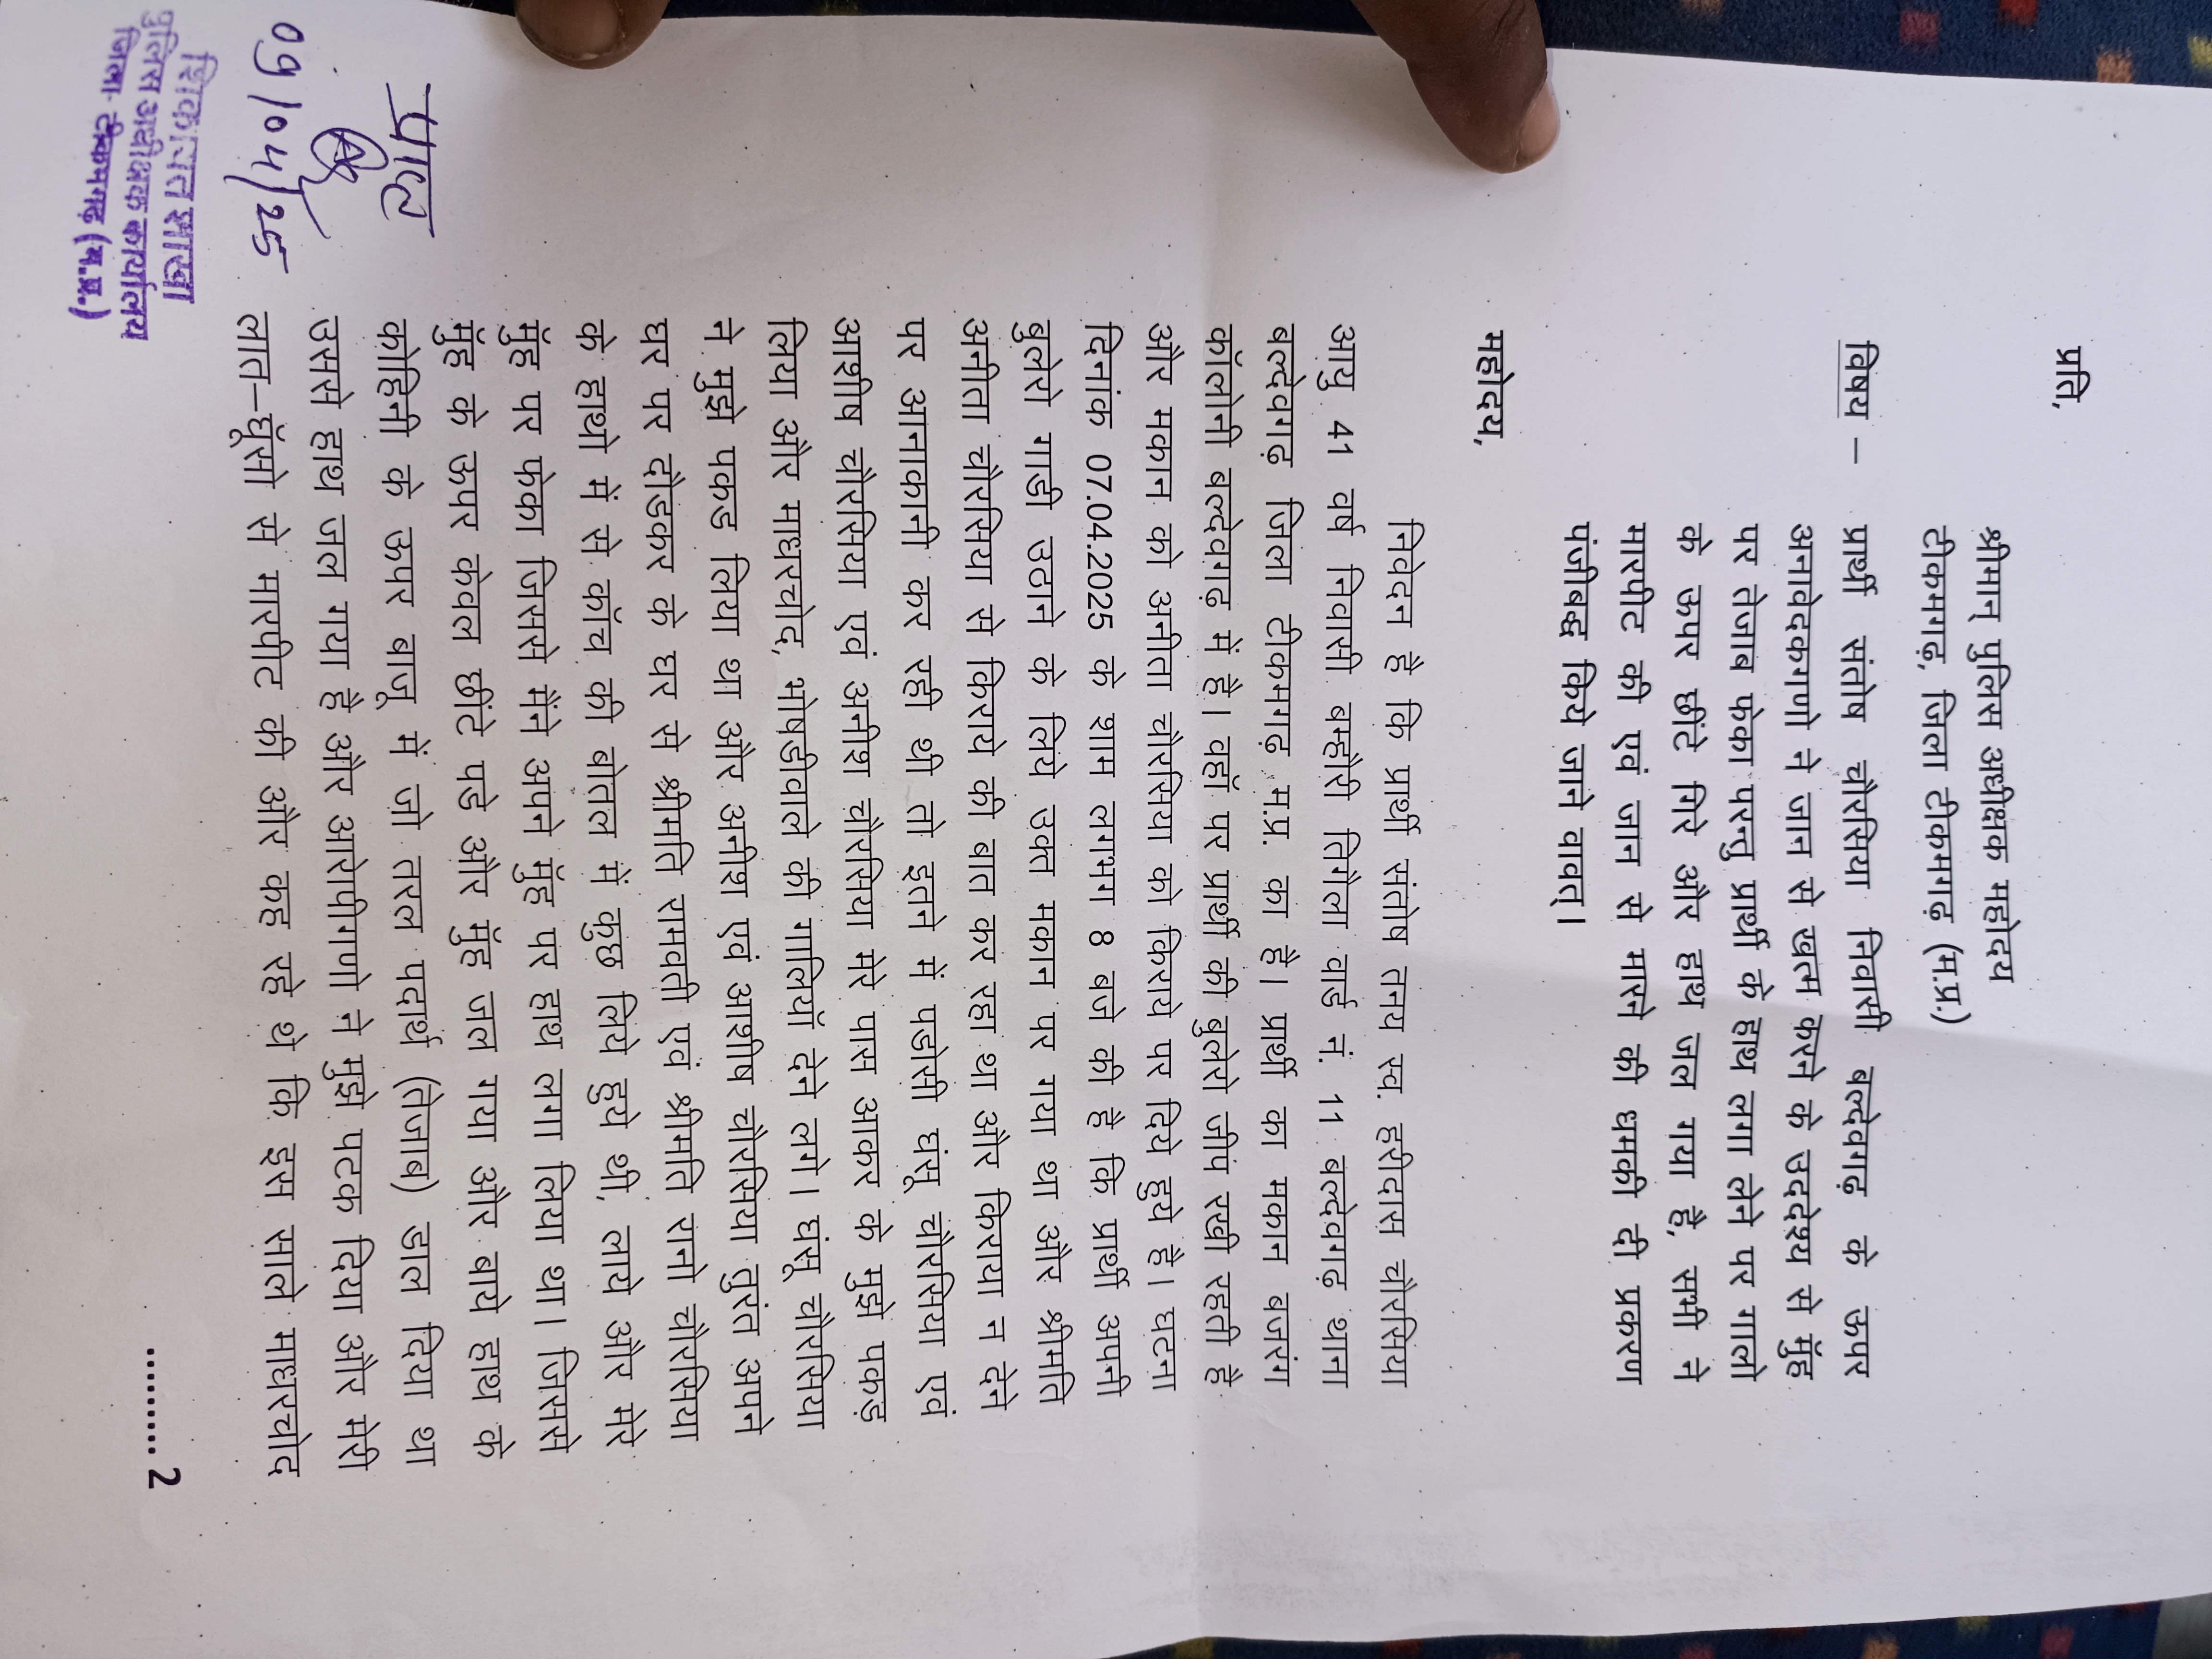 प्रति,
श्रीमान् पुलिस अधीक्षक महोदय
टीकमगढ़, जिला टीकमगढ़ (म.प्र.)
विषय – प्रार्थी संतोष चौरसिया निवासी बल्देवगढ़ के ऊपर
अनावेदकगणो ने जान से खत्म करने के उददेश्य से मुँह
पर तेजाब फेका परन्तु प्रार्थी के हाथ लगा लेने पर गालो
के ऊपर छींटे गिरे और हाथ जल गया है, सभी ने
मारपीट की एवं जान से मारने की धमकी दी प्रकरण
पंजीबद्ध किये जाने वावत्।
महोदय,
निवेदन है कि प्रार्थी संतोष तनय स्व. हरीदास चौरसिया
आयु 41 वर्ष निवासी बम्हौरी तिगैला वार्ड नं. 11 बल्देवगढ़ थाना
बल्देवगढ़ जिला टीकमगढ़ म.प्र. का है। प्रार्थी का मकान बजरंग
कॉलोनी बल्देवगढ़ में है। वहाँ पर प्रार्थी की बुलेरो जीप रखी रहती है
और मकान को अनीता चौरसिया को किराये पर दिये हुये है। घटना
दिनांक 07.04.2025 के शाम लगभग 8 बजे की है कि प्रार्थी अपनी
बुलेरो गाडी उठाने के लिये उक्त मकान पर गया था और श्रीमति
अनीता चौरसिया से किराये की बात कर रहा था और किराया न देने
पर आनाकानी कर रही थी तो इतने में पडोसी घंसू चौरसिया एवं
आशीष चौरसिया एवं अनीश चौरसिया मेरे पास आकर के मुझे पकड़
लिया और माधरचोद, भोषडीवाले की गालियॉ देने लगे। घंसू चौरसिया
ने मुझे पकड लिया था और अनीश एवं आशीष चौरसिया तुरंत अपने
घर पर दौडकर के घर से श्रीमति रामवती एवं श्रीमति रानो चौरसिया
के हाथो में से कॉच की बोतल में कुछ लिये हुये थी, लाये और मेरे
मुँह पर फेका जिससे मैंने अपने मुँह पर हाथ लगा लिया था। जिससे
मुँह के ऊपर केवल छींटे पडे और मुँह जल गया और बाये हाथ के
कोहिनी के ऊपर बाजू में जो तरल पदार्थ (तेजाब) डाल दिया था
उससे हाथ जल गया है और आरोपीगणो ने मुझे पटक दिया और मेरी
लात–घूंसो से मारपीट की और कह रहे थे कि इस साले माधरचोद
......... 2
प्राप्त
09/04/25
शिकायत शाखा
पुलिस अधीक्षक कार्यालय
जिला टीकमगढ़ (म.प्र.)